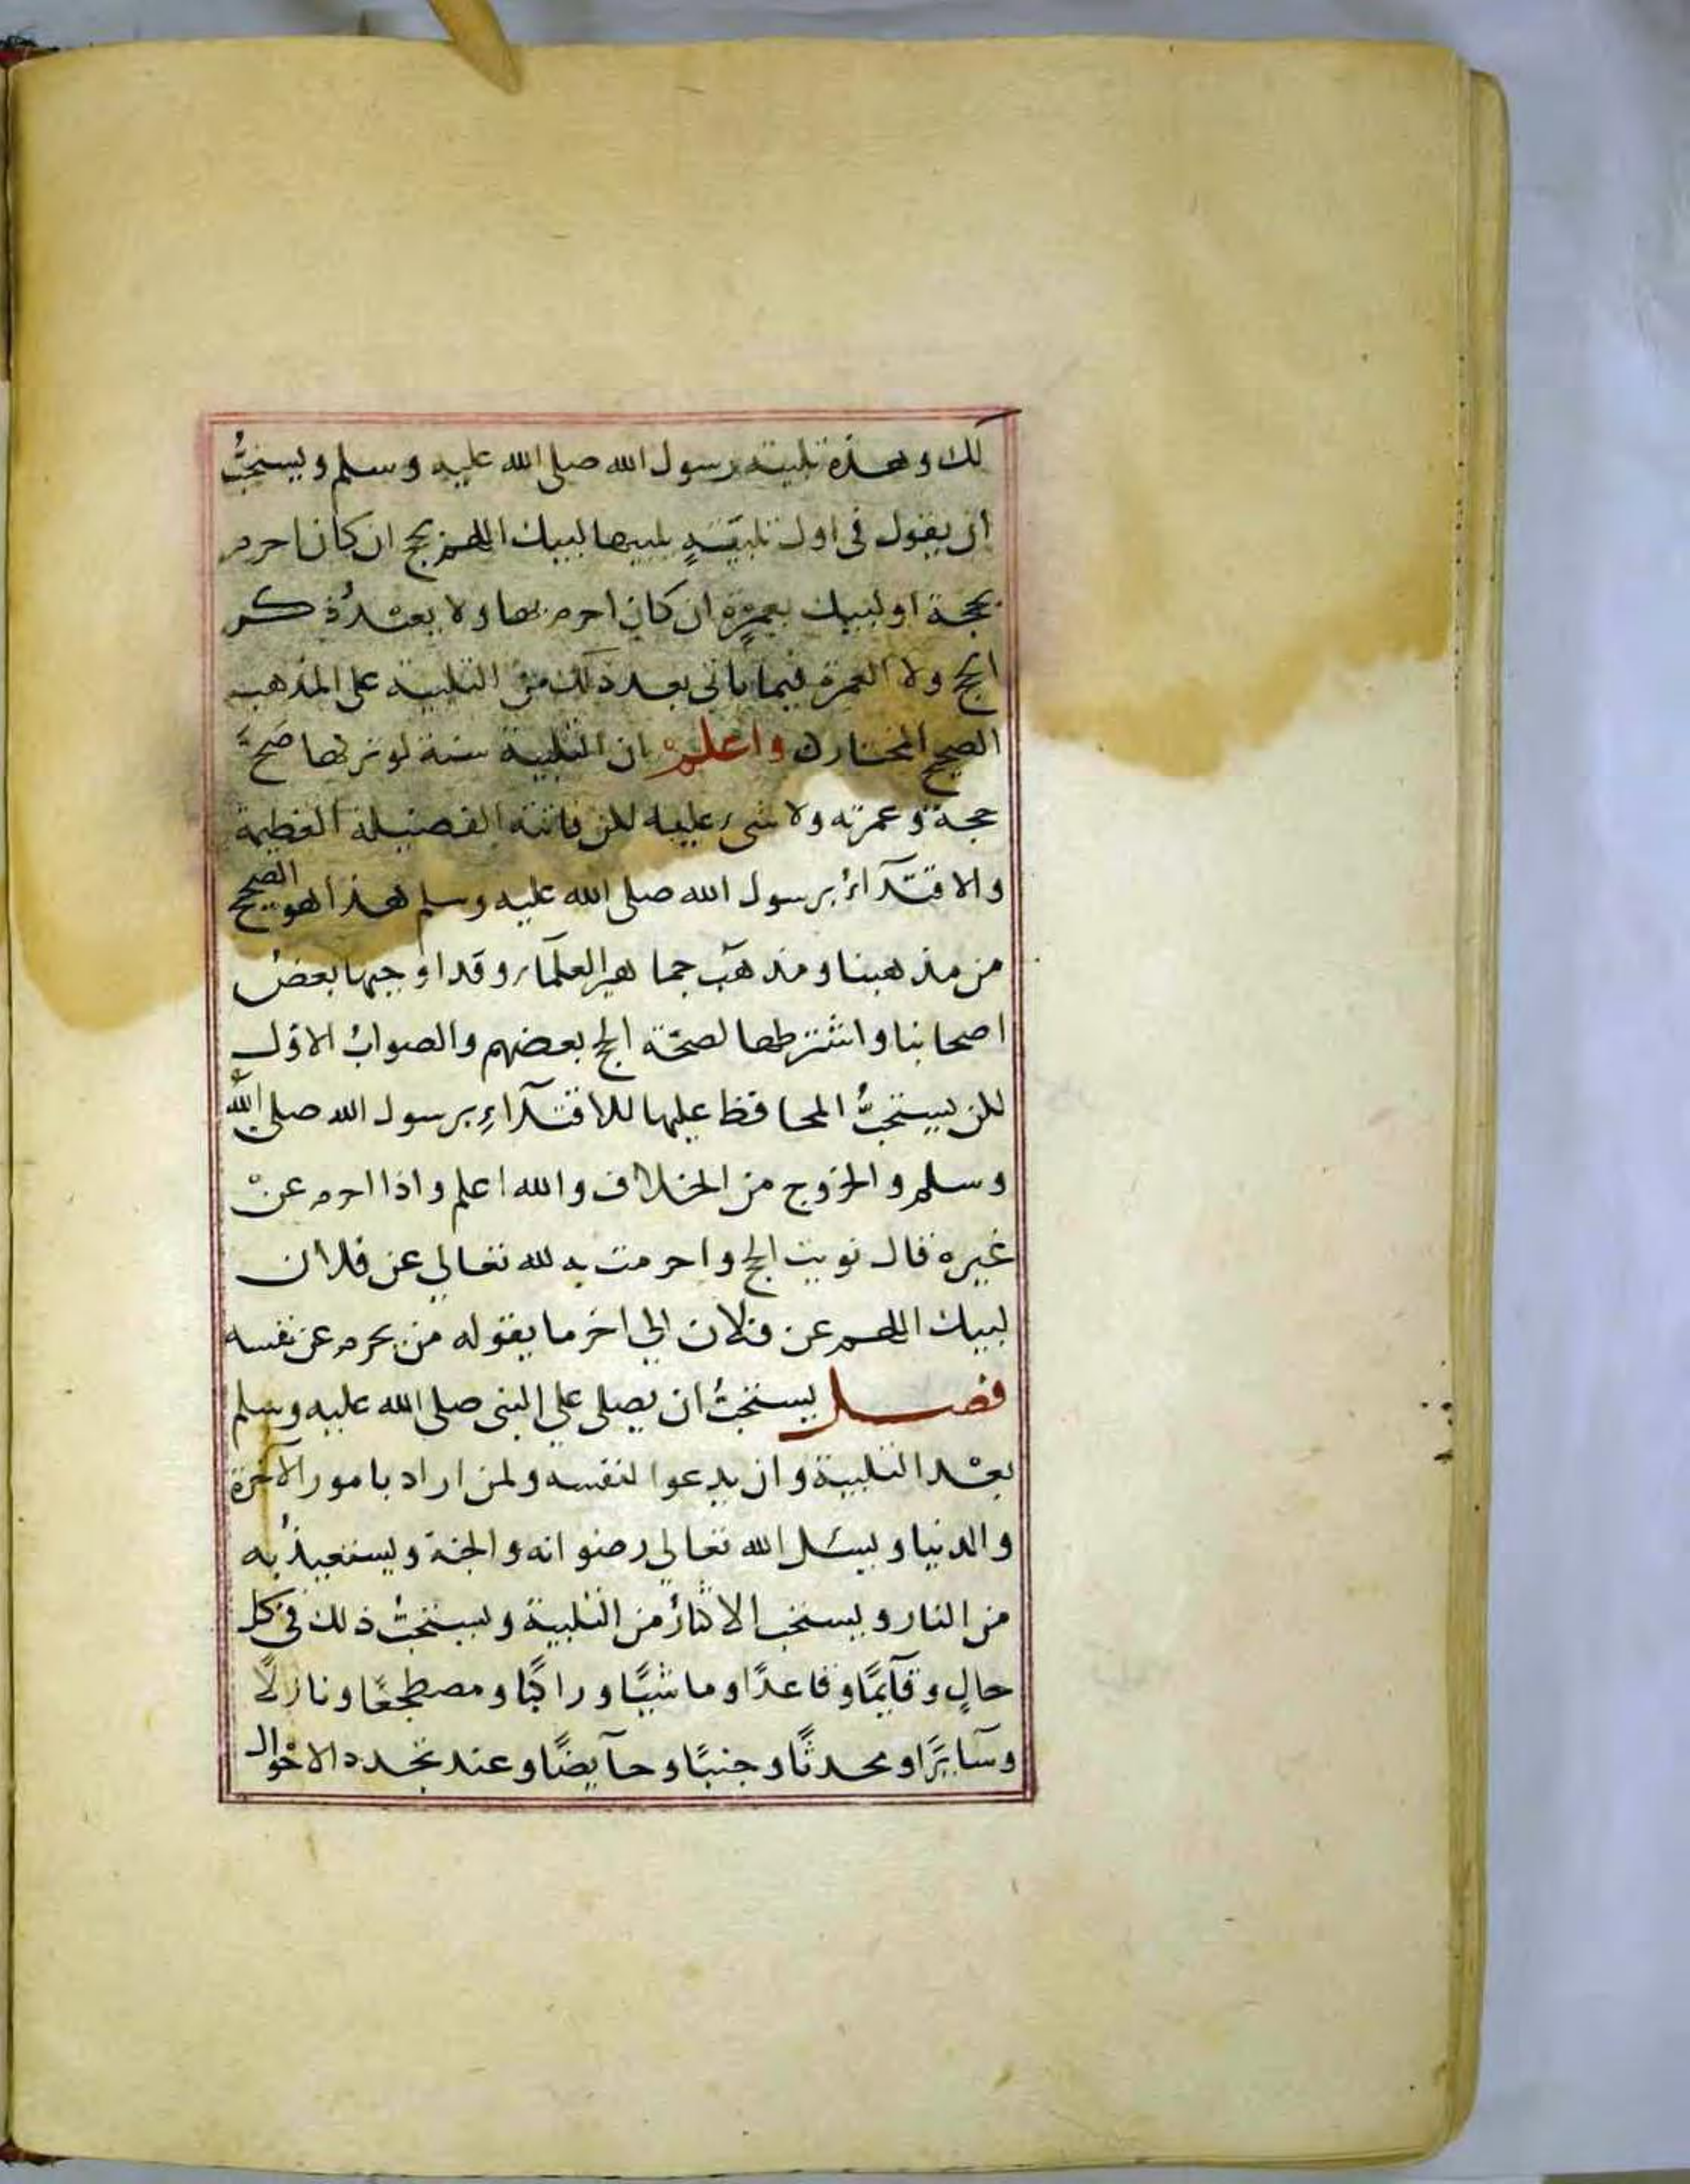 لك وهذه تلبية رسول الله صلى الله عليه وسلم ويستحبُّ
ان يقول فى اول تلبيّةٍ يلبيها لبيك اللهم بحج ان كان احرم
بحجة او لبيك بعمرةٍ ان كان احرم بها ولا يعتدُ ذكر
الحج ولا العمرة فيما ياتى بعد ذلك من التلبية على المذهب
الصحيح المختار واعلم ان التلبية سنة لو تركها صحَّ
حجة وعمرته ولا شىء عليه لكن فاتته الفضيلة العظيمة
والاقتدآءُ برسول الله صلى الله عليه وسلم هذا هو الصحيح
من مذهبنا ومذهب جماهير العلمآء وقد اوجبها بعضُ
اصحابنا واشترطها لصحّة الحج بعضهم والصوابُ الاوّل
لكن يستحبُّ المحافظ عليها للاقتدآءِ برسول الله صلى الله
وسلم والخروج من الخلاف والله اعلم واذا احرم عنْ
غيره قال نويت الحج واحرمت به لله تعالي عن فلان
لبيك اللهم عن فلان الي اخر ما يقوله من يحرم عن نفسه
فصل يستحبُ ان يصلى علي النبى صلى الله عليه وسلم
بعْد التلبية وان يدعوا لنفسه ولمن اراد بامور الآخرة
والدنيا ويسئل الله تعالي رضوانه والجنة ويستعيذُ به
من النار ويستحب الاكثارُ من التلبية ويستحبُ ذلك فى كل
حالٍ وقآيمًا وقاعدًا وماشيًا وراكبًا ومضطجعًا ونازلًا
وسآيرًا ومحدثًا وجنبًا وحآيضًا وعند تجدد الاحْوال